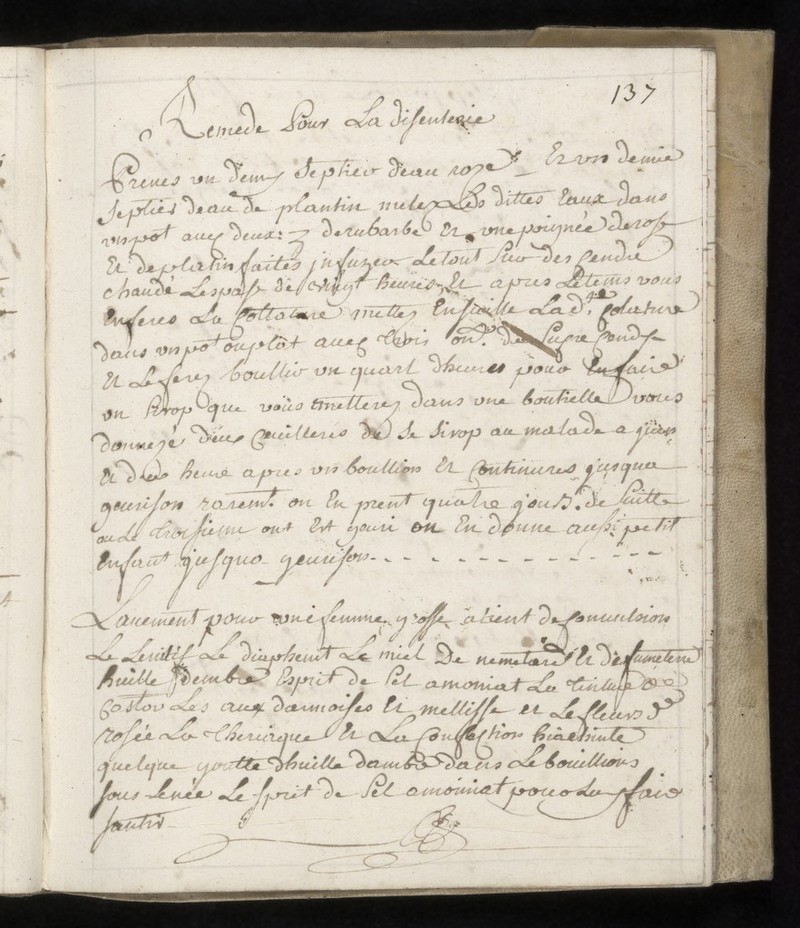 137
Remede Pour La disenterie
Prenes un demy Septier deau roze Et un demie
Septier deau de plantin metez Les dittes Eaux dans
un pot avec deux: ʒ derubarbe Et une poignée derose
Et deplatin faites jnfuzer Letout Sur des Cendre
chaude Lespasse de vingt heures, Et apres Letems vous
Enferes La Collature mettez Ensuitte Lad.te Colature
dans un pot ou plat avec trois on.s de Sucre Cande
Et Leferez boullir un quart dheures pour Enfaire
un Sirop que vous metterez dans une boutielle vous
donneze deux Ceuilleres de Se Sirop au malade a jeun
Et deux heure apres un boullion Et Continures jusqua
geurison rarem.t on En prent quatre jours de Suitte
au Le troisieme ont Est gueri on En donne aussi petit
Enfant jusqua geurison
Lavement pour une femme grosse atient de Convulsion
Le Lenitif Le diaphenit Le miel De Et de fumeterre
huille dembre Esprit de Sel amoniat La tinture de
Castor Les aux darmoises Et mellisse et Le fleurs de
rosée La theriaque Et La Confection hiacinte
quelque goutte dhuille dambre dans Le bouillions
sous Lenée Le sprit de Sel amoniat pour La faire
santir